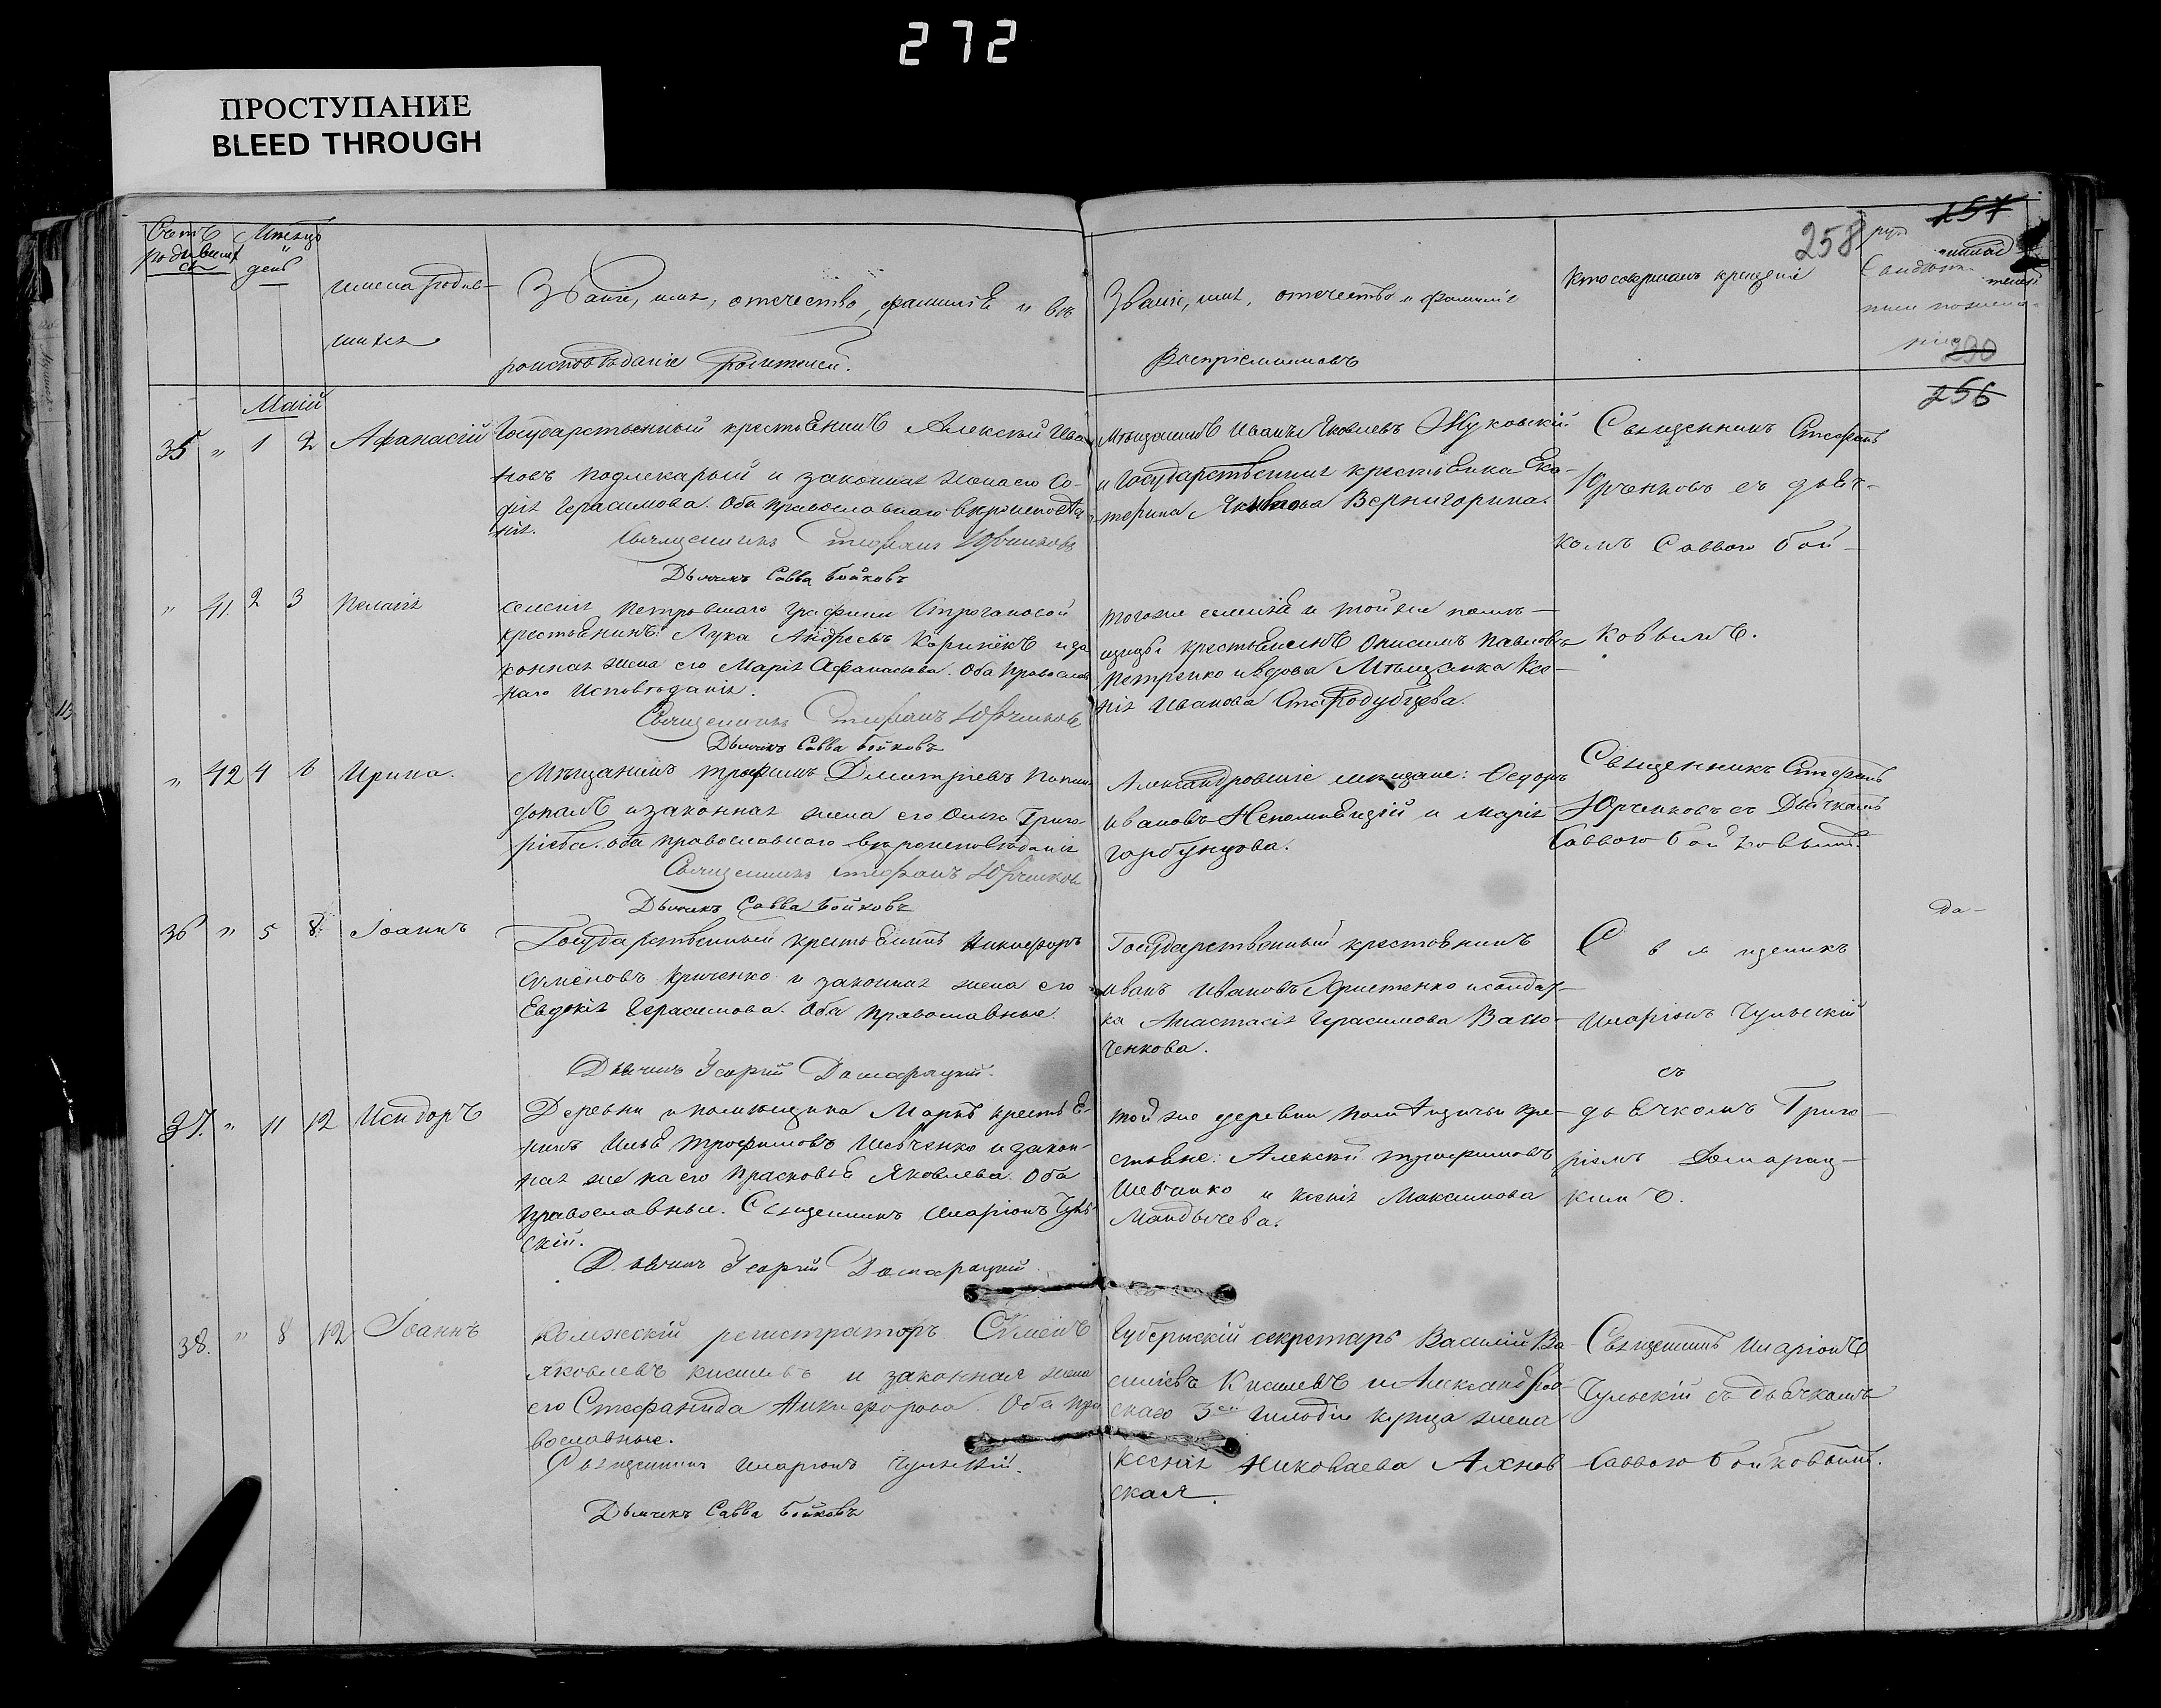 272
ПРОСТУПАНИЕ
BLEED THROUGH
257
258
Счетъ родившихся
Мѣсяцъ день
имена родив-
шихся
Званіе, имя, отечество, фамилія и вѣ
роисповѣданіе родителей.
Званіе, имя, отечество и фамилія
Воспріемниковъ
Кто совершалъ крещеніе
230
256
Маій
35 " 1 2 Афанасій
Государственный крестьянинъ Алексѣй Ива
новъ Подлекарый и законная жена его Со-
фія Герасимова. Оба православнаго вѣроисповѣда
нія.
Священникъ Стефанъ Юрченковъ
Дьячекъ Савва Бойковъ
Мѣщанинъ Иванъ Яковлевъ Жуковскій
и Государственная крестьянка Ека-
терина Верингорина.
Священникъ Стефанъ
Юрченковъ съ дьяч-
комъ Саввою Бой-
ковымъ.
" 41 2 3 Пелагія
селенія Петровшаго Графини Строгановой
крестьянинъ Лука Андреевъ и за
конная жена его Марія Афанасьева. Оба православ
наго исповѣданія.
Священникъ Стефанъ Юрченковъ
Дьячекъ Савва Бойковъ
того же селенія и той же помѣ-
щицы крестьянинъ Онисимъ Павловъ
Петренко и вдова Мѣщанка Ксе-
нія Иванова Стародубцева.
" 42 4 6 Ирина.
Мѣщанинъ Трофимъ Дмитріевъ
и законная жена его Ольга Григо-
ріева. оба православнаго вѣроисповѣданія
Священникъ Стефанъ Юрченковъ
Дьячекъ Савва Бойковъ
Александровшіе мѣщане: Ѳедоръ
Ивановъ и Марія
Горбунцова.
Священникъ Стефанъ
Юрченковъ съ Дьячкомъ
Саввою Бойковымъ.
36 " 5 8 Іоаннъ
Государственный крестьянинъ Никифоръ
Семеновъ Криченко и законная жена его
Евдокія Герасимова. Оба православные.
Дьячекъ Георгій Домарацкій.
Государственный крестьянинъ
Иванъ Ивановъ и солдат-
ка Анастасія Герасимова Ваню-
ченкова.
Священникъ
Иларіонъ Чульскій
съ
дьячкомъ Григо-
ріемъ Домарац-
кимъ.
да-
37. " 11 12 Исидоръ
Деревни и помѣщика Марка крестья-
нинъ Илья Трофимовъ Шевченко и закон-
ная жена его Прасковья Яковлева. Оба
православные. Священникъ Иларіонъ Чуль-
скій.
Дьячекъ Георгій Домарацкій
той же деревни помѣщичьи кре-
стьяне: Алексѣй Трофимовъ
Шевченко и Ксенія Максимова
Мандычева.
38. " 8 12 Іоаннъ
регистраторъ Семенъ
Яковлевъ и законная жена
его Стефанида Никифорова. Оба пра
вославные.
Священникъ Иларіонъ Чульскій.
Дьячекъ Савва Бойковъ
Губернскій секретарь Василій Ва-
сильевъ и Александров-
скаго 3ей гильдіи купца жена
Ксенія Николаева Ахнов
ская.
Священникъ Иларіонъ
Чульскій съ дьячкомъ
Саввою Бойковымъ.